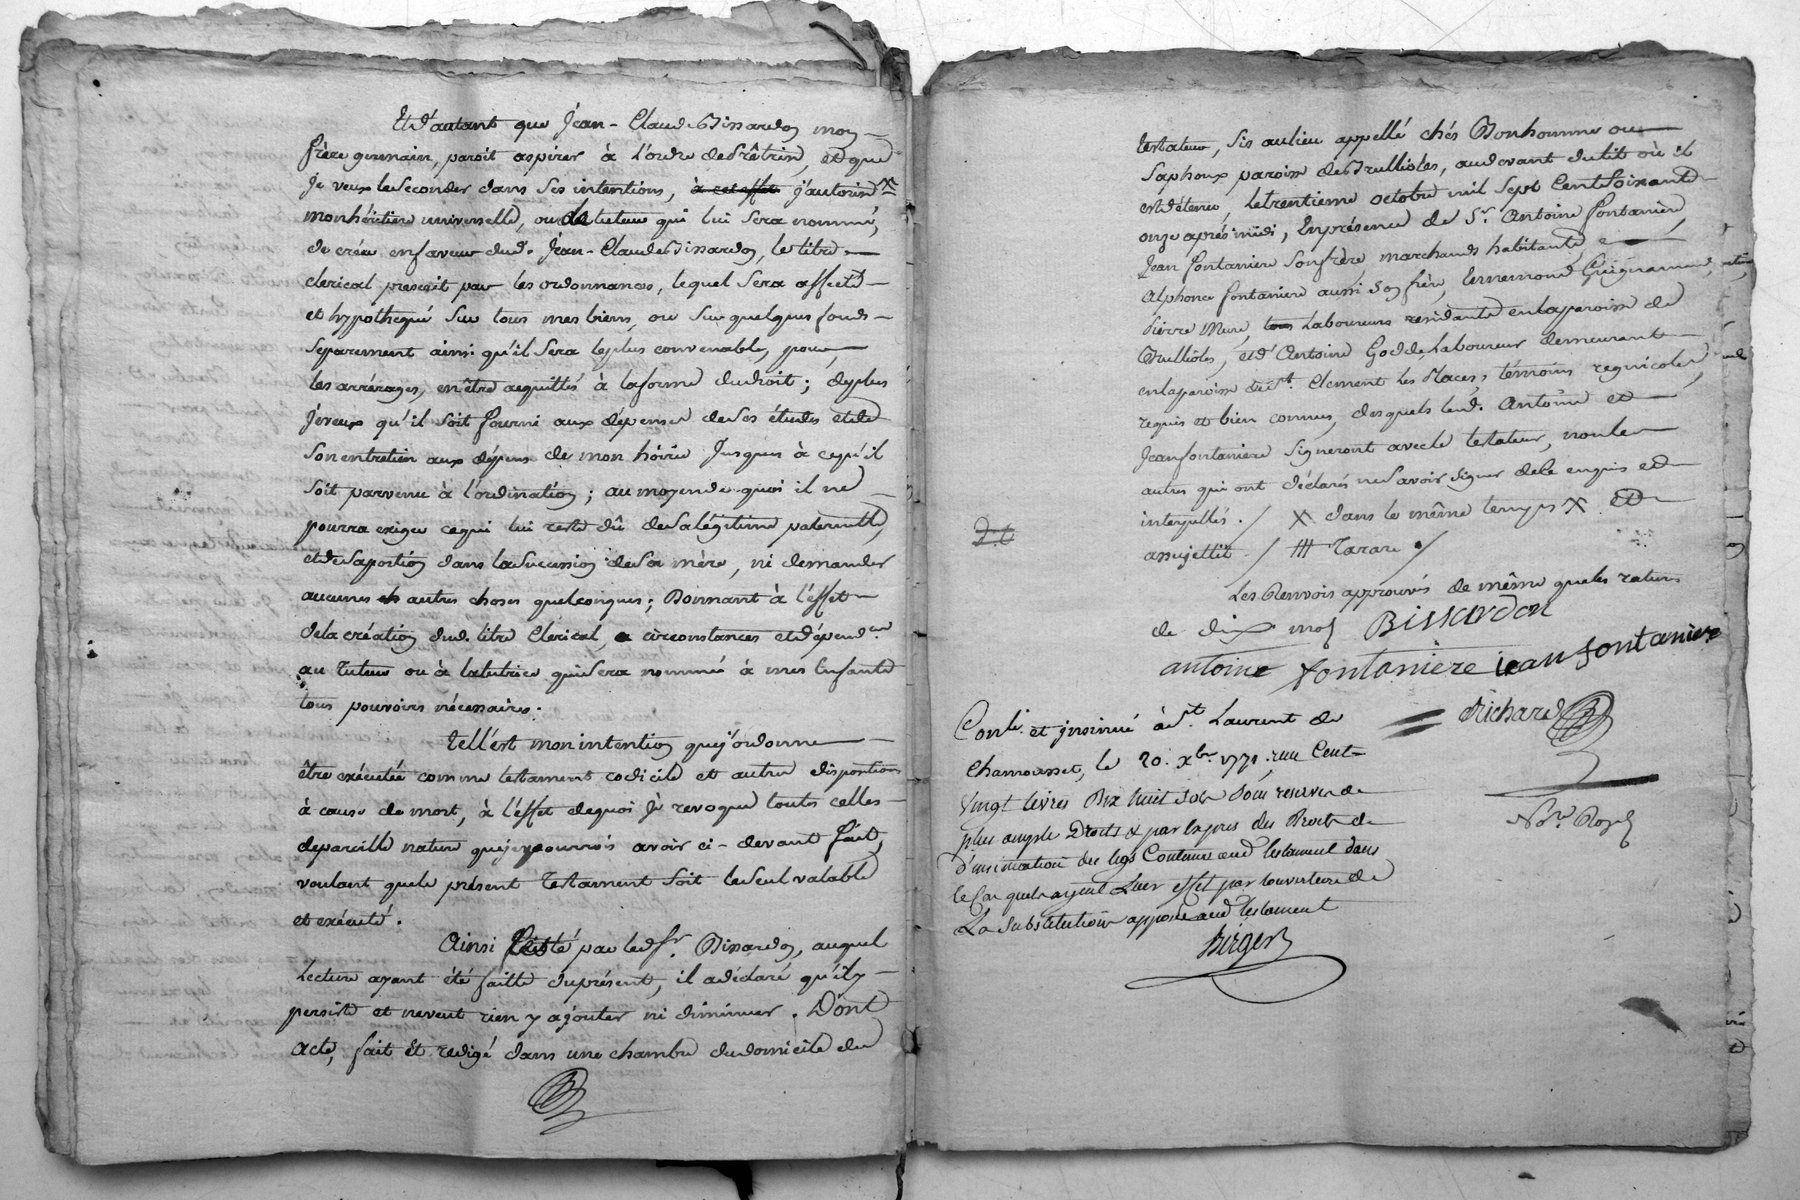 Et d'autant que Jean-Claude Bissardon mon
frère germain, paroit aspirer à l'ordre de Prêtrise, et que
Je veux le seconder dans ses intentions, à cet effet j'autorise X
mon héritiere universelle, ou le tuteur qui lui sera nommé,
de créer en faveur dud. Jean-Claude Bissardon, le titre
clerical prescrit par les ordonnances, lequel sera affecté
et hypothequé sur tous mes biens, ou sur quelques fonds
séparement ainsi qu'il sera le plus convenable, pour
les arrérages, en être acquittés à la forme du droit; de plus
j'éveux qu'il soit fourni aux dépenses de ses études et de
son entretien aux dépens de mon hóirie Jusques à ce qu'il
soit parvenu à l'ordination; au moyen de quoi il ne
pourra exiger ce qui lui reste dû de sa légitime paternelle,
et de sa portion dans la succession de sa mère, ni demander
aucunes autres choses quelconques; Donnant à l'effet
de la création dud. titre Clerical, circonstances et dépendces
au tuteur ou à la tutrice qui sera nommé à mes Enfants
tous pouvoirs nécessaires.
Tell'est mon intention que j'ordonne
être exécutée comme testament codicile et autre disposition
à cause de mort, à l'effet de quoi Je revoque toutes celles
de pareille nature que je pourrois avoir ci-devant fait,
voulant que le présent Testament soit le seul valable
et exécuté.
Ainsi dicté par led. Sr. Bissardon, auquel
Lecture ayant été faitte du présent, il a déclaré qu'il y
persiste et ne veut rien y ajouter ni diminuer. Dont
acte, fait et redigé dans une chambre du domicile du
testateur, sis au lieu appellé chés Bonhomme ou
Saphoux paroisse des Trullioles, au devant du lit où il
est détenu, le trentieme octobre mil sept Cent Soixante
onze après midi, En présence de Sr. Antoine fontaniere
Jean fontaniere son frère, marchands habitants
Alphonce fontaniere aussi son frère,
Pierre Mure, tous Laboureurs résidants en la paroisse de
Trullióles, et d'Antoine Godde Laboureur demeurant
en la paroisse de St. Clement Les Places, témoins regnicoles,
requis et bien connus, desquels led. Antoine et
Jean fontaniere signeront avec le testateur, non les
autres qui ont déclarés ne savoir signer de ce enquis et
interpellés. / X dans le même temps X et
assujettit. / III Tarare ./
Les Renvois approuvés de même que les ratures
de dix mots BISSARDON
antoine fontaniere jean fontaniere
Richard
Nore. Royal
Conlé. et insinué à St. Laurent de
Chamousset, le 20. Xbre 1771. reçu Cent
Vingt livres Dix huit sols sous reserve de
plus ample Droits & par Exprès des Droits de
d'insinuation des legs Contenus aud testament dans
le Cas quils ayent Leur effet par l'ouverture de
La Substitution apposée aud testament
Birger